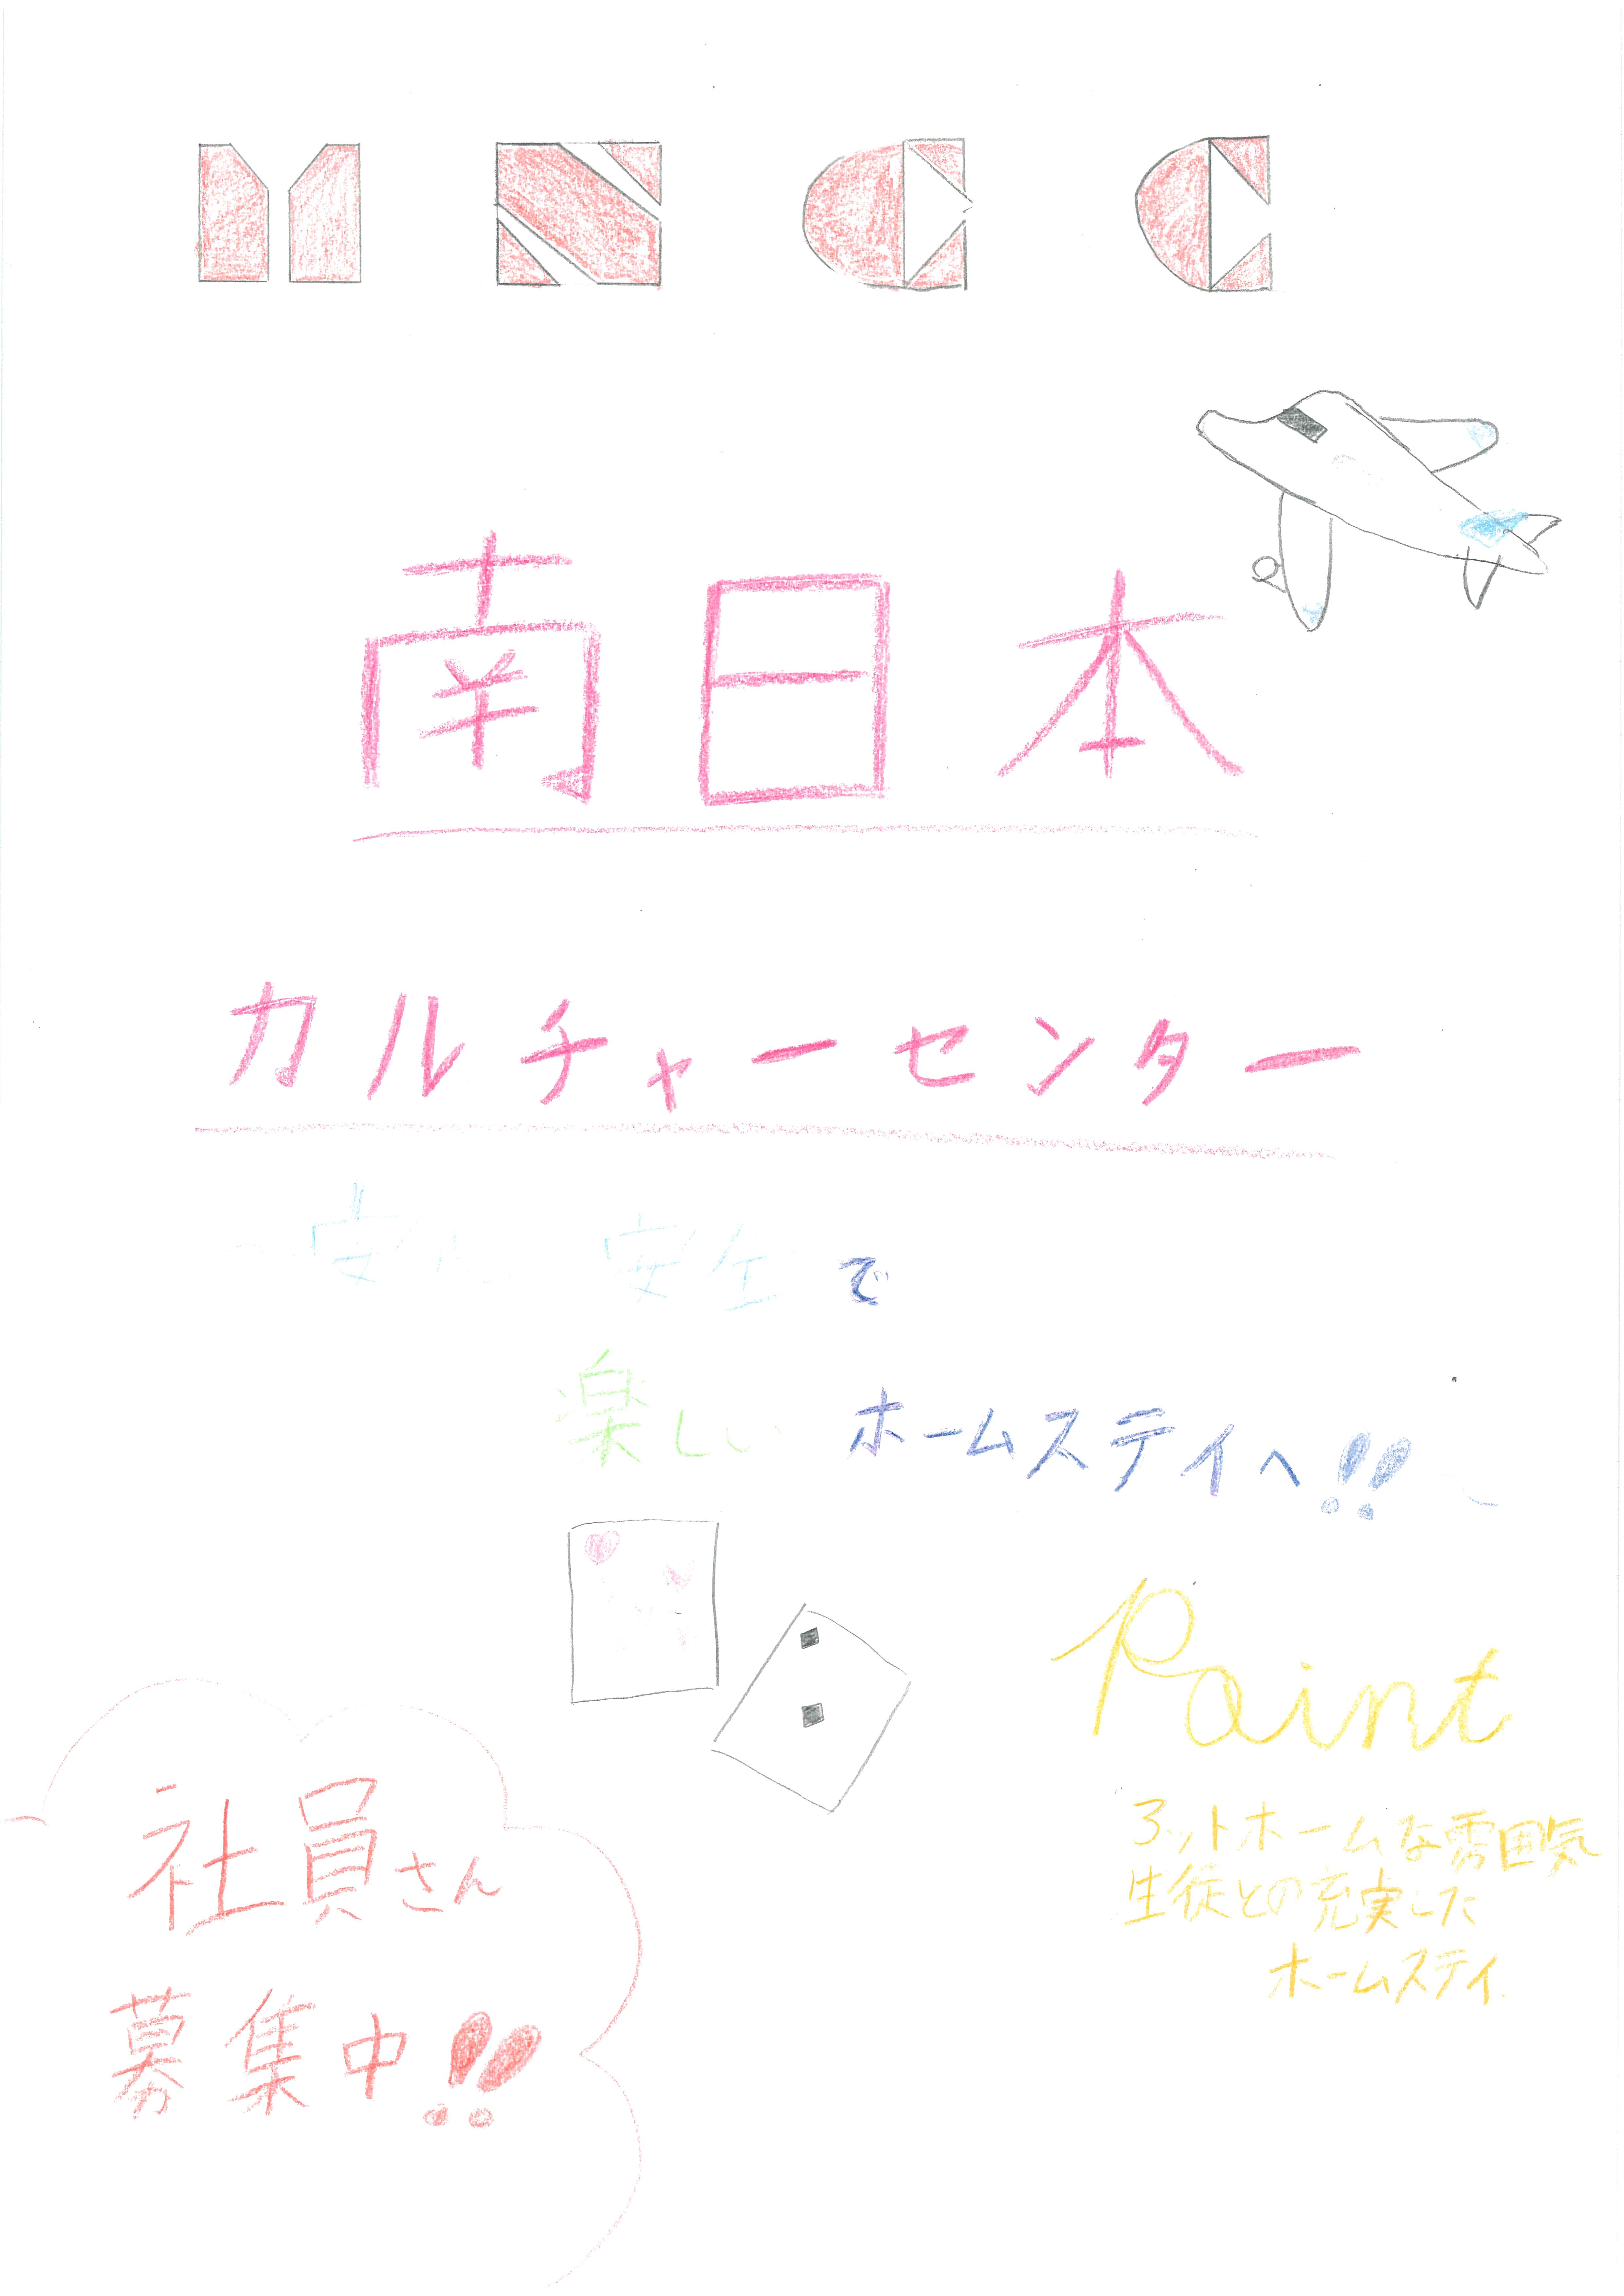 MNCC
南日本
カルチャーセンター
〜安心 安全で
楽しい ホームステイへ!!〜
Paint
アットホームな雰囲気
生徒との充実した
ホームステイ.
社員さん
募集中!!